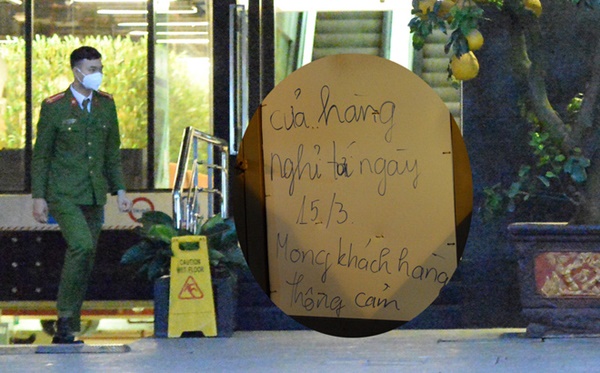 cửa hàng
nghỉ từ ngày
15/3.
Mong khách hàng
thông cảm
CAUTION
WET FLOOR